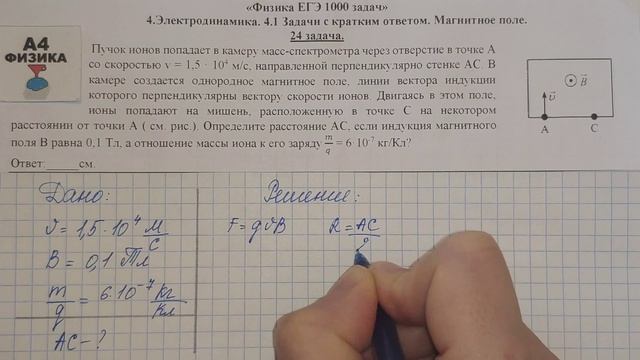 «Физика ЕГЭ 1000 задач»
4.Электродинамика. 4.1 Задачи с кратким ответом. Магнитное поле.
24 задача.
А4
ФИЗИКА
Пучок ионов попадает в камеру масс-спектрометра через отверстие в точке А
со скоростью v = 1,5 · 10⁴ м/с, направленной перпендикулярно стенке АС. В
камере создается однородное магнитное поле, линии вектора индукции
которого перпендикулярны вектору скорости ионов. Двигаясь в этом поле,
ионы попадают на мишень, расположенную в точке С на некотором
расстоянии от точки А ( см. рис.). Определите расстояние АС, если индукция магнитного
поля В равна 0,1 Тл, а отношение массы иона к его заряду m/q = 6·10⁻⁷ кг/Кл?
Ответ:_____см.
B
υ
А С
Дано:
υ = 1,5·10⁴ м/с
B = 0,1 Тл
m/q = 6·10⁻⁷ кг/Кл
AC – ?
Решение:
F = qυB R = AC